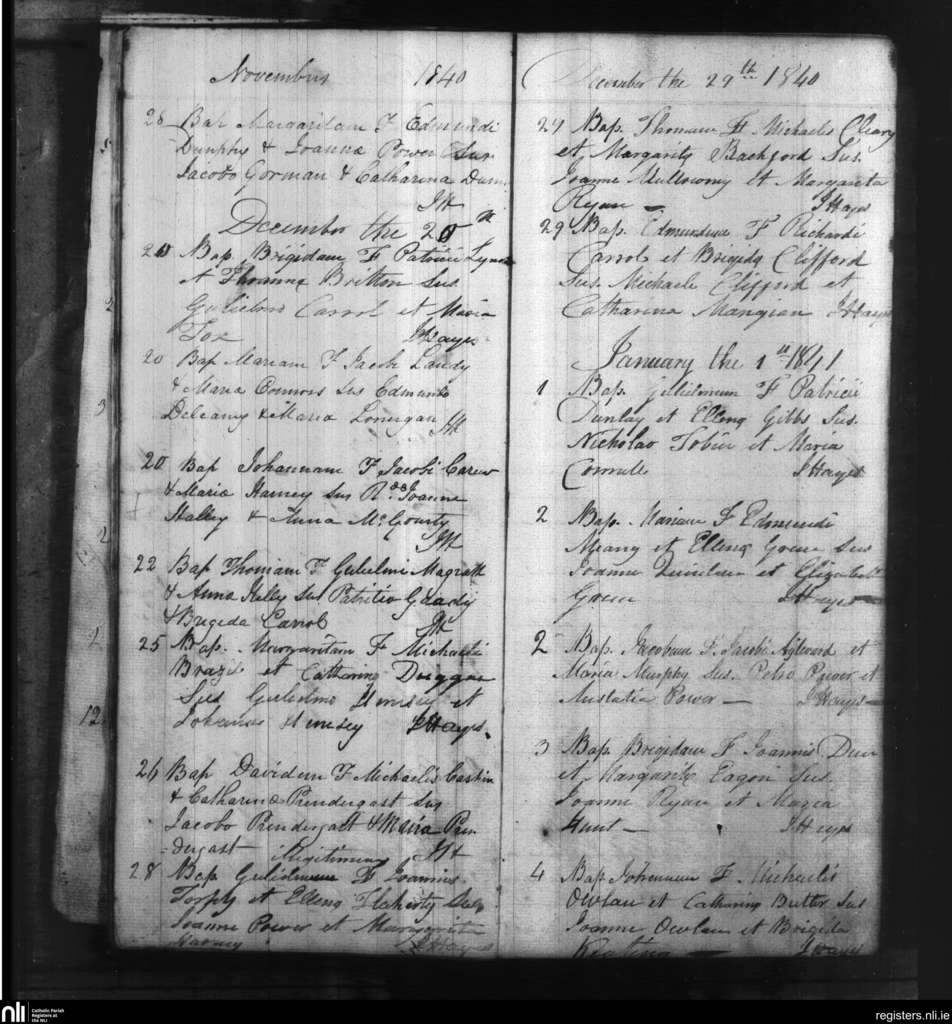 Novembris 1840
28 Bap Margaritam F Edmundi
Dunphy & Joanna Power Sus
Jacobo Gorman & Catharina Dunn
JH
December the 20th
20 Bap. Brigidam F Patricii Lynch
et Britton Sus
Gulielmo Carrol et Maria
Fox JHayes
20 Bap Mariam F Jacobi Landy
& Maria Connors Sus Edmundo
Deleany & Maria Lonergan JH
20 Bap Johannam F Jacobi Carew
& Maria Harney Sus Joanne
Halley & Anna McGourty
JH
22 Bap Thomam F Gulielmi Magrath
& Anna Kelly Sus Patritio Grady
& Brigida Carrol JH
25 Bap. Margaritam F Michaelis
et Catharina Duggan
Sus Gulielmo et
JHayes.
26 Bap Davidem F Michaelis
& Catharina Prendergast Sus
Jacobo Prendergast & Maria Pren
=dergast Illegitimus JH
28 Bap Gulielmum F Joannis
Torphy et Ellena Flaherty Sus
Joanne Power et Margarita
JHayes
December the 29th 1840
29 Bap. Thomam F Michaelis Cleary
et Margarita Sus.
Joanne et Margareta
Ryan — JHayes
29 Bap. Edmundum F Richardi
Carrol et Brigida Clifford
Sus. Michaele Clifford et
Catharina Mangian JHayes
January the 1st 1841
1 Bap. Gulielmum F Patricii
Dunlay et Ellena Gibbs Sus.
Nicholao Tobin et Maria
JHayes
2 Bap. Mariam F Edmundi
Meany et Ellena Green Sus
Joanne Quinlan et Elizabeth
Green JHayes
2 Bap. Jacobum F. Jacobi Aylward et
Maria Murphy Sus. Petro Power et
Anstatia Power — JHayes
3 Bap Brigidam F Joannis Dunn
et Margarita Eagon Sus.
Joanne Ryan et Maria
Hunt — JHayes
4 Bap Johannem F Michaelis
Owlan et Catharina Butler Sus
Joanne Owlan et Brigida
Keating — JHayes
3
2
12
nli
Catholic Parish
Registers at
the NLI
registers.nli.ie